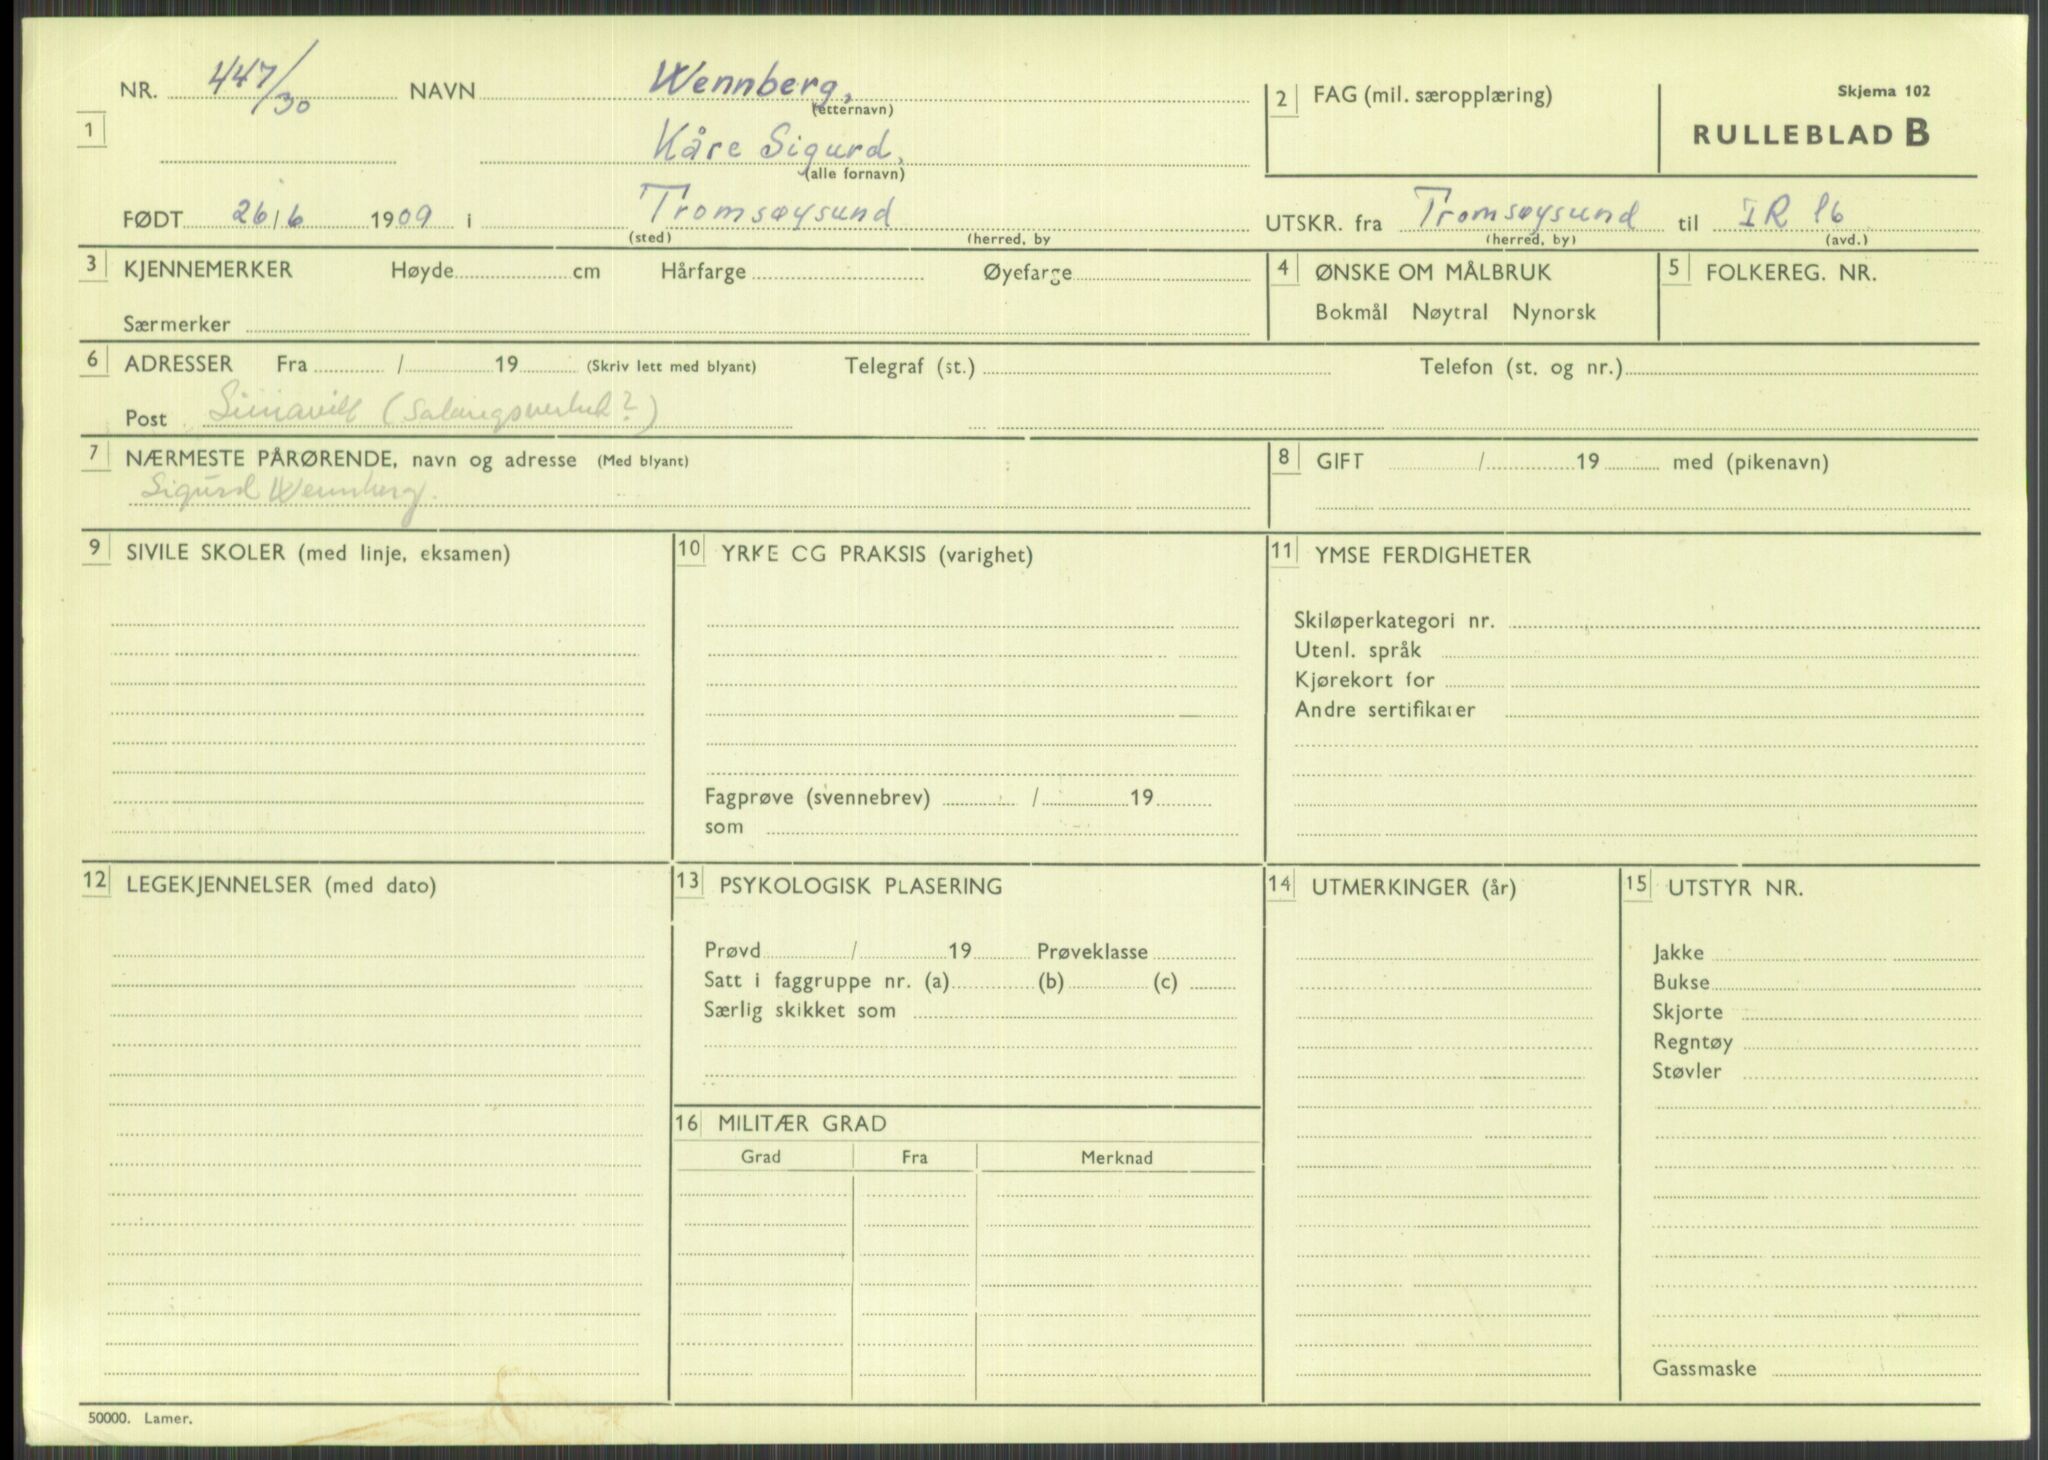 NR. 447/30 NAVN Wennberg, 2 FAG (mil. særopplæring) Skjema 102
(etternavn)
1 RULLEBLAD B
Kåre Sigurd,
(alle fornavn)
FØDT 26/6 1909 i Tromsøysund UTSKR. fra Tromsøysund til IR 16
(sted) (herred, by (herred, by) (avd.)
3 KJENNEMERKER Høyde cm Hårfarge Øyefarge 4 ØNSKE OM MÅLBRUK 5 FOLKEREG. NR.
Særmerker Bokmål Nøytral Nynorsk
6 ADRESSER Fra / 19 (Skriv lett med blyant) Telegraf (st.) Telefon (st. og nr.)
Post
7 NÆRMESTE PÅRØRENDE, navn og adresse (Med blyant) 8 GIFT / 19 med (pikenavn)
Sigurd Wennberg.
9 SIVILE SKOLER (med linje, eksamen) 10 YRKE CG PRAKSIS (varighet) 11 YMSE FERDIGHETER
Skiløperkategori nr.
Utenl. språk
Kjørekort for
Andre sertifikater
Fagprøve (svennebrev) / 19
som
12 LEGEKJENNELSER (med dato) 13 PSYKOLOGISK PLASERING 14 UTMERKINGER (år) 15 UTSTYR NR.
Prøvd / 19 Prøveklasse Jakke
Satt i faggruppe nr. (a) (b) (c) Bukse
Særlig skikket som Skjorte
Regntøy
Støvler
16 MILITÆR GRAD
Grad Fra Merknad
Gassmaske
50000. Lamer.